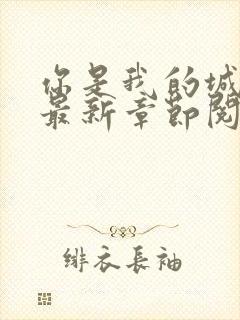 你是我的城
最新章節閱
緋衣長袖